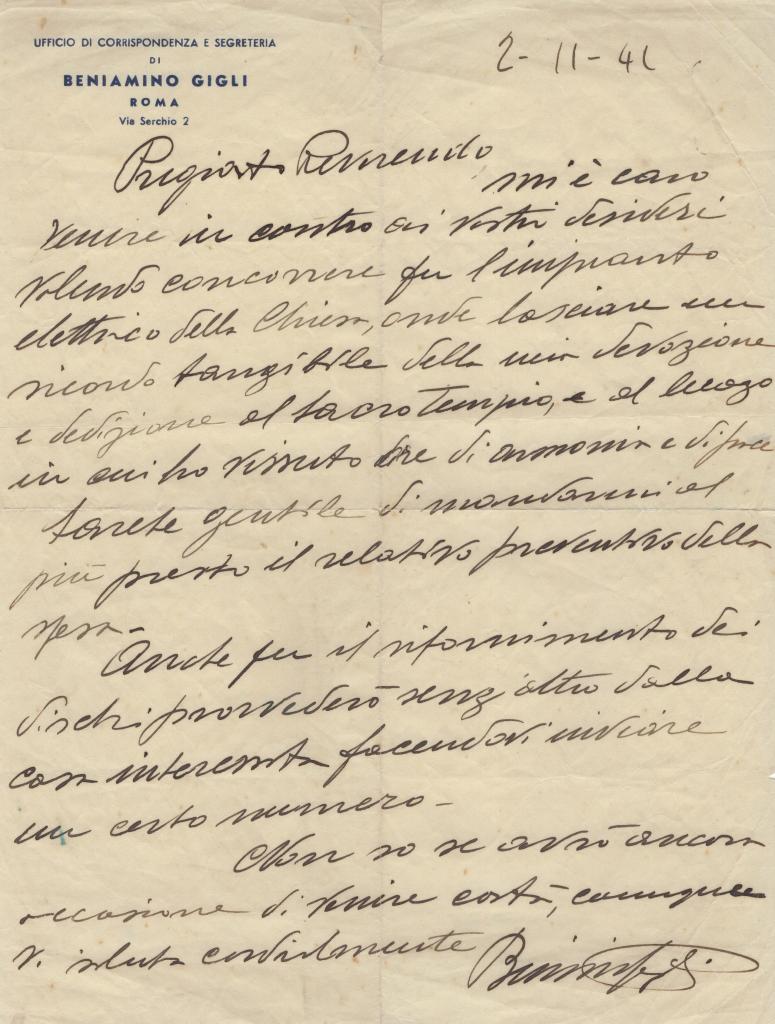 UFFICIO DI CORRISPONDENZA E SEGRETERIA
DI
BENIAMINO GIGLI
ROMA
Via Serchio 2
2-11-41
Pregiato Reverendo
mi è caro
venire in contro ai vostri desideri
volendo concorrere per l'impianto
elettrico della Chiesa, onde lasciare un
ricordo tangibile della mia devozione
e dedizione al sacro Tempio, e al luogo
in cui ho vissuto ore di armonia e di pace
Sarete gentile di mandarmi al
più presto il relativo preventivo della
spesa-
Anche per il rifornimento dei
dischi provvederò senz'altro dalla
casa interessata facendovi inviare
un certo numero-
Non so se avrò ancora
occasione di venire costà, comunque
vi saluta cordialmente Beniamino Gigli